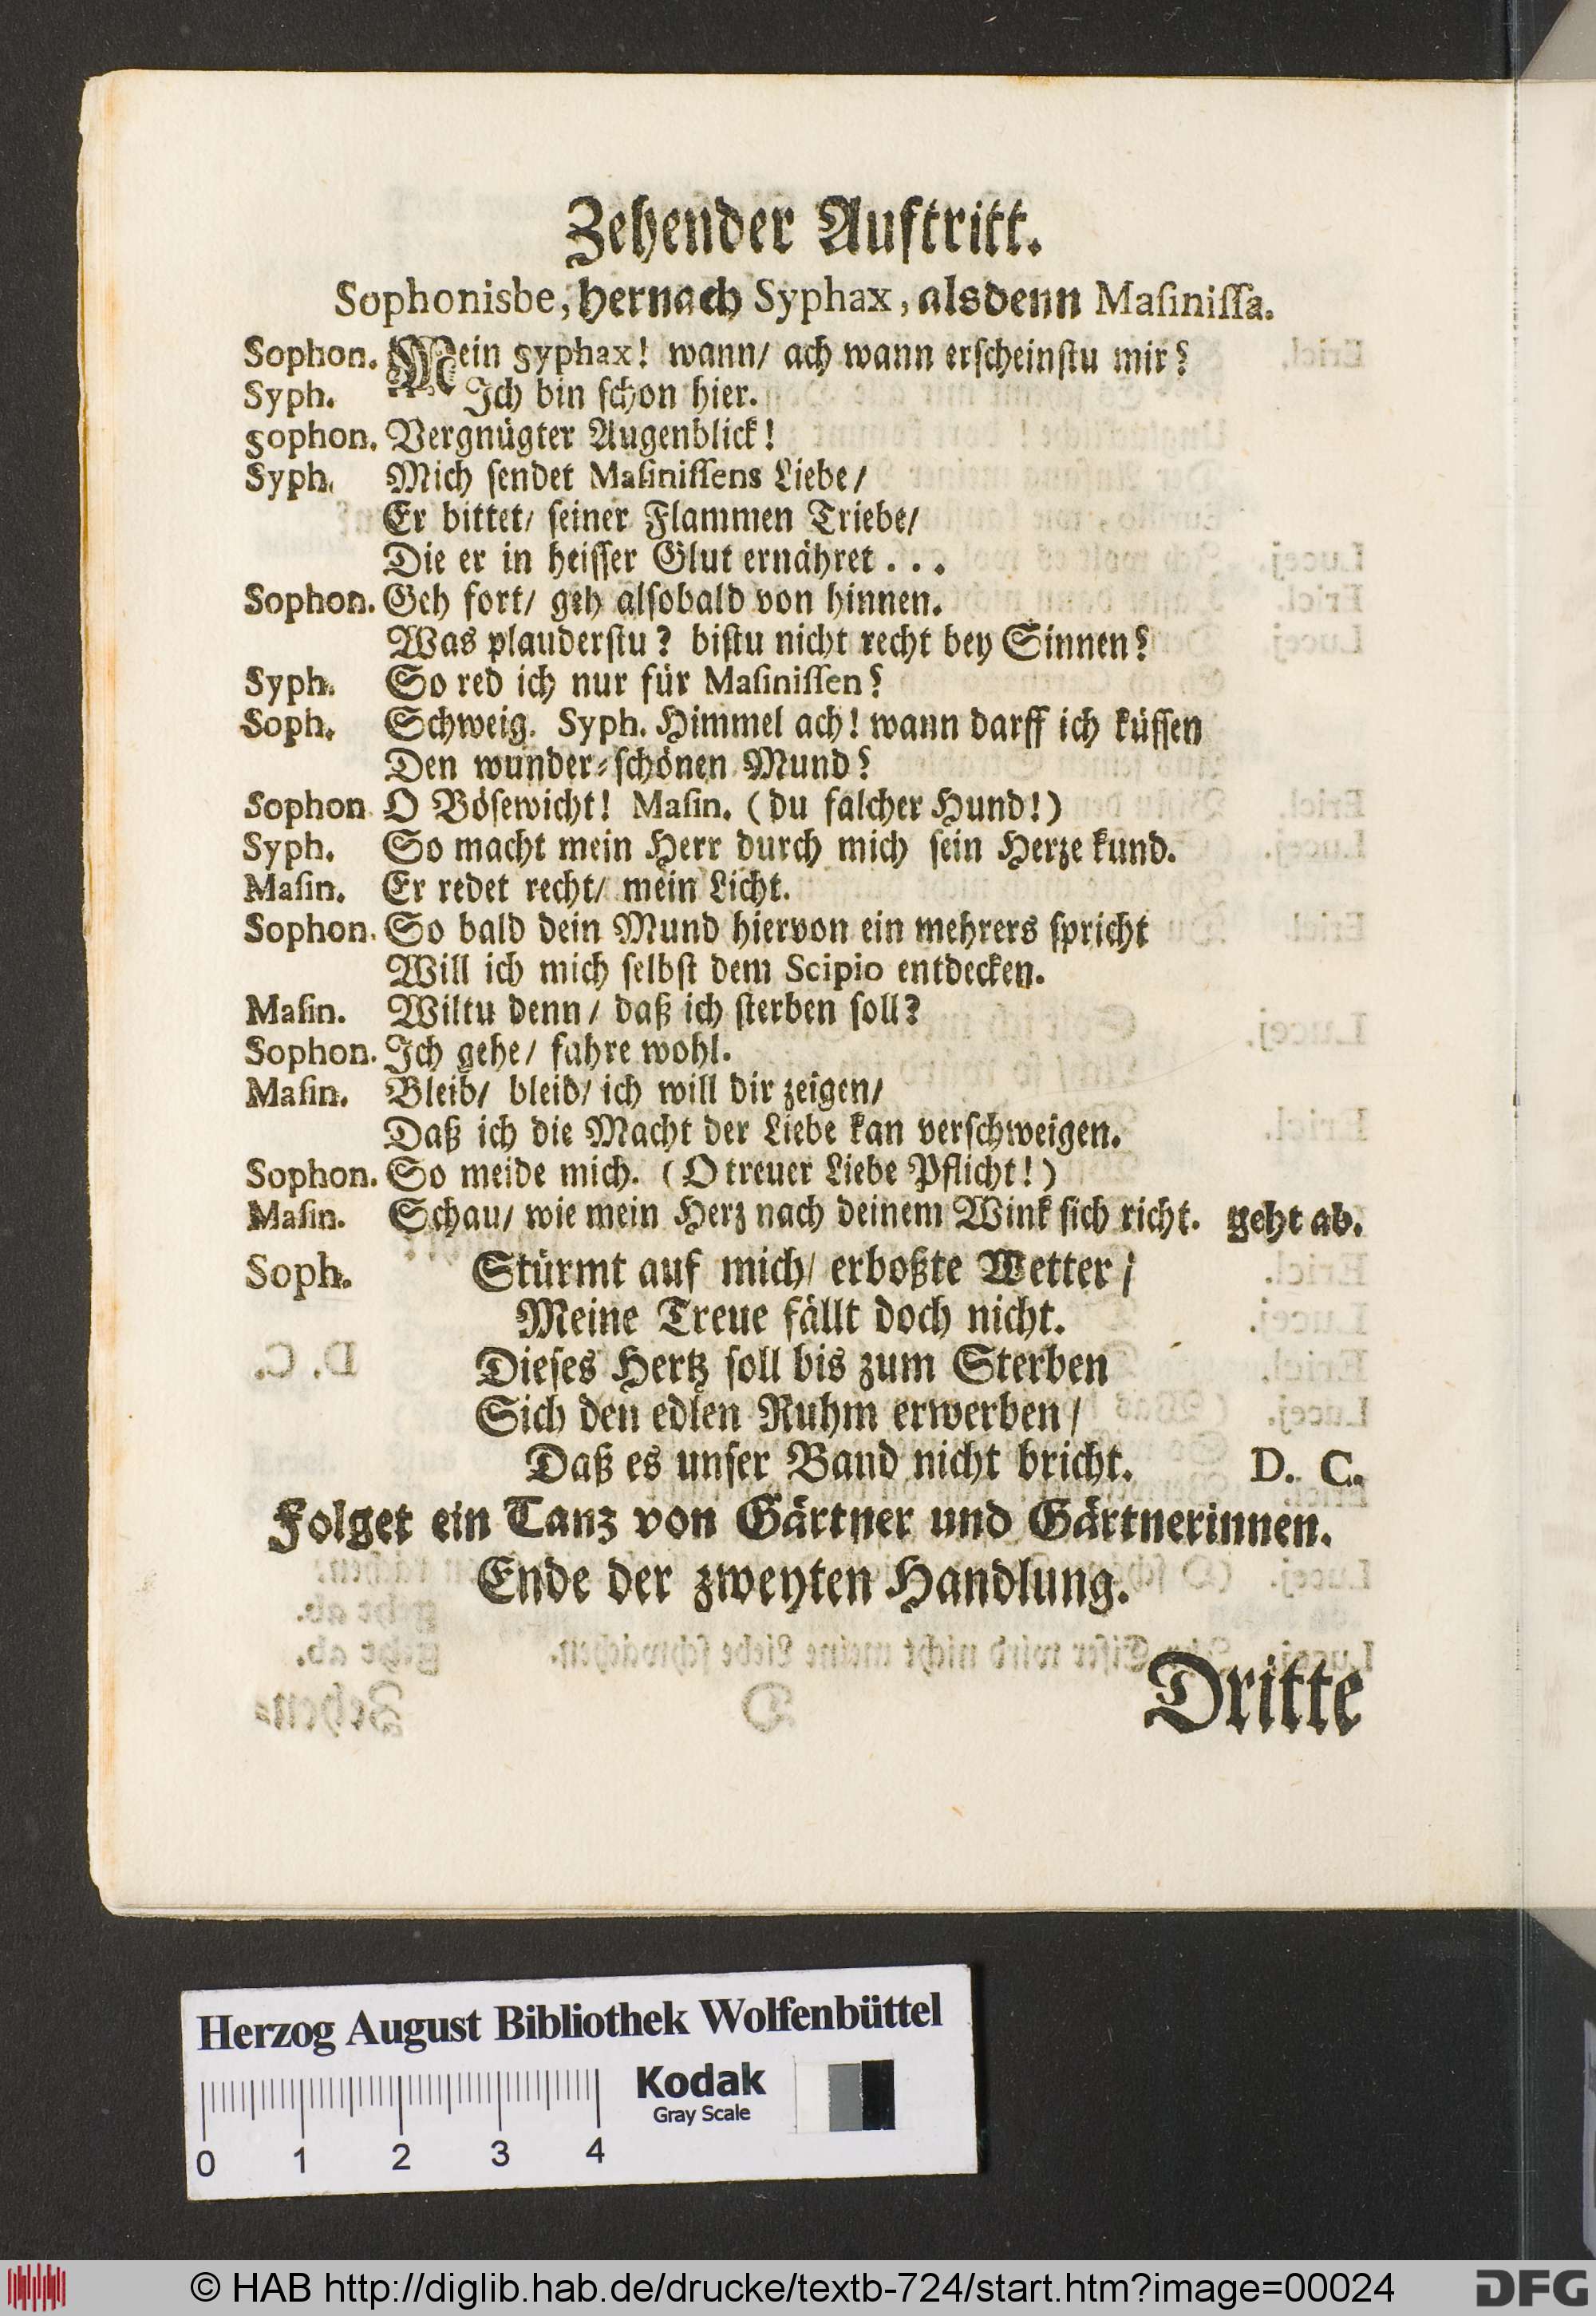 Zehender Auftritt.
Sophonisbe, hernach Syphax, alsdenn Maſiniſſa.
Sophon. Mein Syphax! wann/ ach wann erſcheinſtu mir?
Syph. Ich bin ſchon hier.
Sophon. Vergnügter Augenblick!
Syph. Mich ſendet Maſiniſſens Liebe/
Er bittet/ ſeiner Flammen Triebe/
Die er in heiſſer Glut ernähret . . .
Sophon. Geh fort/ geh alſobald von hinnen.
Was plauderſtu? biſtu nicht recht bey Sinnen?
Syph. So red ich nur für Maſiniſſen?
Soph. Schweig. Syph. Himmel ach! wann darff ich küſſen
Den wunder-ſchönen Mund?
Sophon O Böſewicht! Maſin. (du falcher Hund!)
Syph. So macht mein Herr durch mich ſein Herze kund.
Maſin. Er redet recht/ mein Licht.
Sophon. So bald dein Mund hiervon ein mehrers ſpricht
Will ich mich ſelbſt dem Scipio entdecken.
Maſin. Wiltu denn/ daß ich ſterben ſoll?
Sophon. Ich gehe/ fahre wohl.
Maſin. Bleib/ bleib/ ich will dir zeigen/
Daß ich die Macht der Liebe kan verſchweigen.
Sophon. So meide mich. (O treuer Liebe Pflicht!)
Maſin. Schau/ wie mein Herz nach deinem Wink ſich richt. geht ab.
Soph. Stürmt auf mich/ erboßte Wetter/
Meine Treue fällt doch nicht.
Dieſes Hertz ſoll bis zum Sterben
Sich den edlen Ruhm erwerben/
Daß es unſer Band nicht bricht. D. C.
Folget ein Tanz von Gärtner und Gärtnerinnen.
Ende der zweyten Handlung.
Dritte
Herzog August Bibliothek Wolfenbüttel
Kodak
Gray Scale
0 1 2 3 4
© HAB http://diglib.hab.de/drucke/textb-724/start.htm?image=00024
DFG